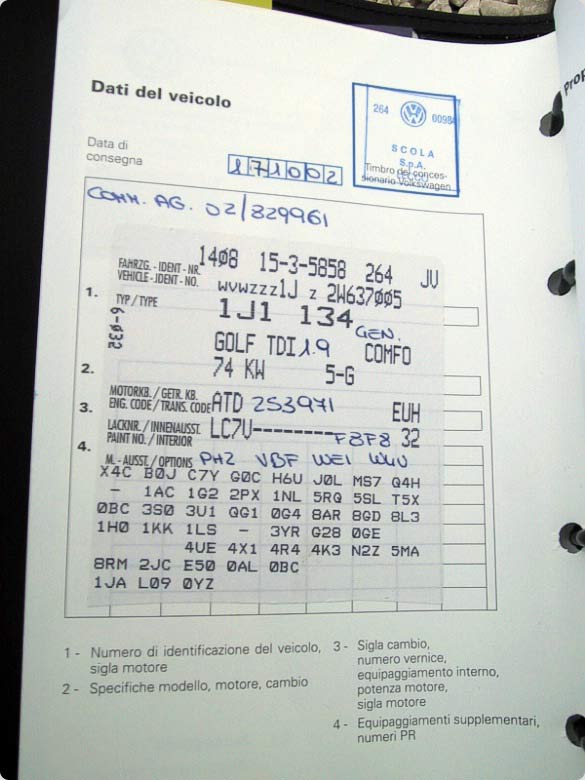 Dati del veicolo
Prop
Data di
consegna
171002
264
0098
SCOLA
S.p.A.
LECCO
Timbro del conces-
sionario Volkswagen
COMM. AG. 02/829961
14Ø8 15-3-5858 264 JV
FAHRZG.-IDENT-NR.
VEHICLE-IDENT-NO.
WVWZZZ1J Z 2W637ØØ5
1.
TYP/TYPE
1J1 134
6-Ø32
GEN.
GOLF TDI 1.9 COMFO
2.
74 KW 5-G
MOTORKB./GETR.KB.
ENG. CODE/TRANS. CODE
ATD 253971 EUH
3.
LACKNR./INNENAUSST.
PAINT NO./INTERIOR
LC7U--------F8F8 32
4.
M.-AUSST./OPTIONS
PHZ VBF WEI WUU
X4C BØJ C7Y GØC H6U JØL MS7 Q4H
- 1AC 1G2 2PX 1NL 5RQ 5SL T5X
ØBC 3SØ 3U1 QG1 ØG4 8AR 8GD 8L3
1HØ 1KK 1LS - 3YR G28 ØGE
4UE 4X1 4R4 4K3 N2Z 5MA
8RM 2JC E5Ø ØAL ØBC
1JA LØ9 ØYZ
1 - Numero di identificazione del veicolo,
sigla motore
2 - Specifiche modello, motore, cambio
3 - Sigla cambio,
numero vernice,
equipaggiamento interno,
potenza motore,
sigla motore
4 - Equipaggiamenti supplementari,
numeri PR